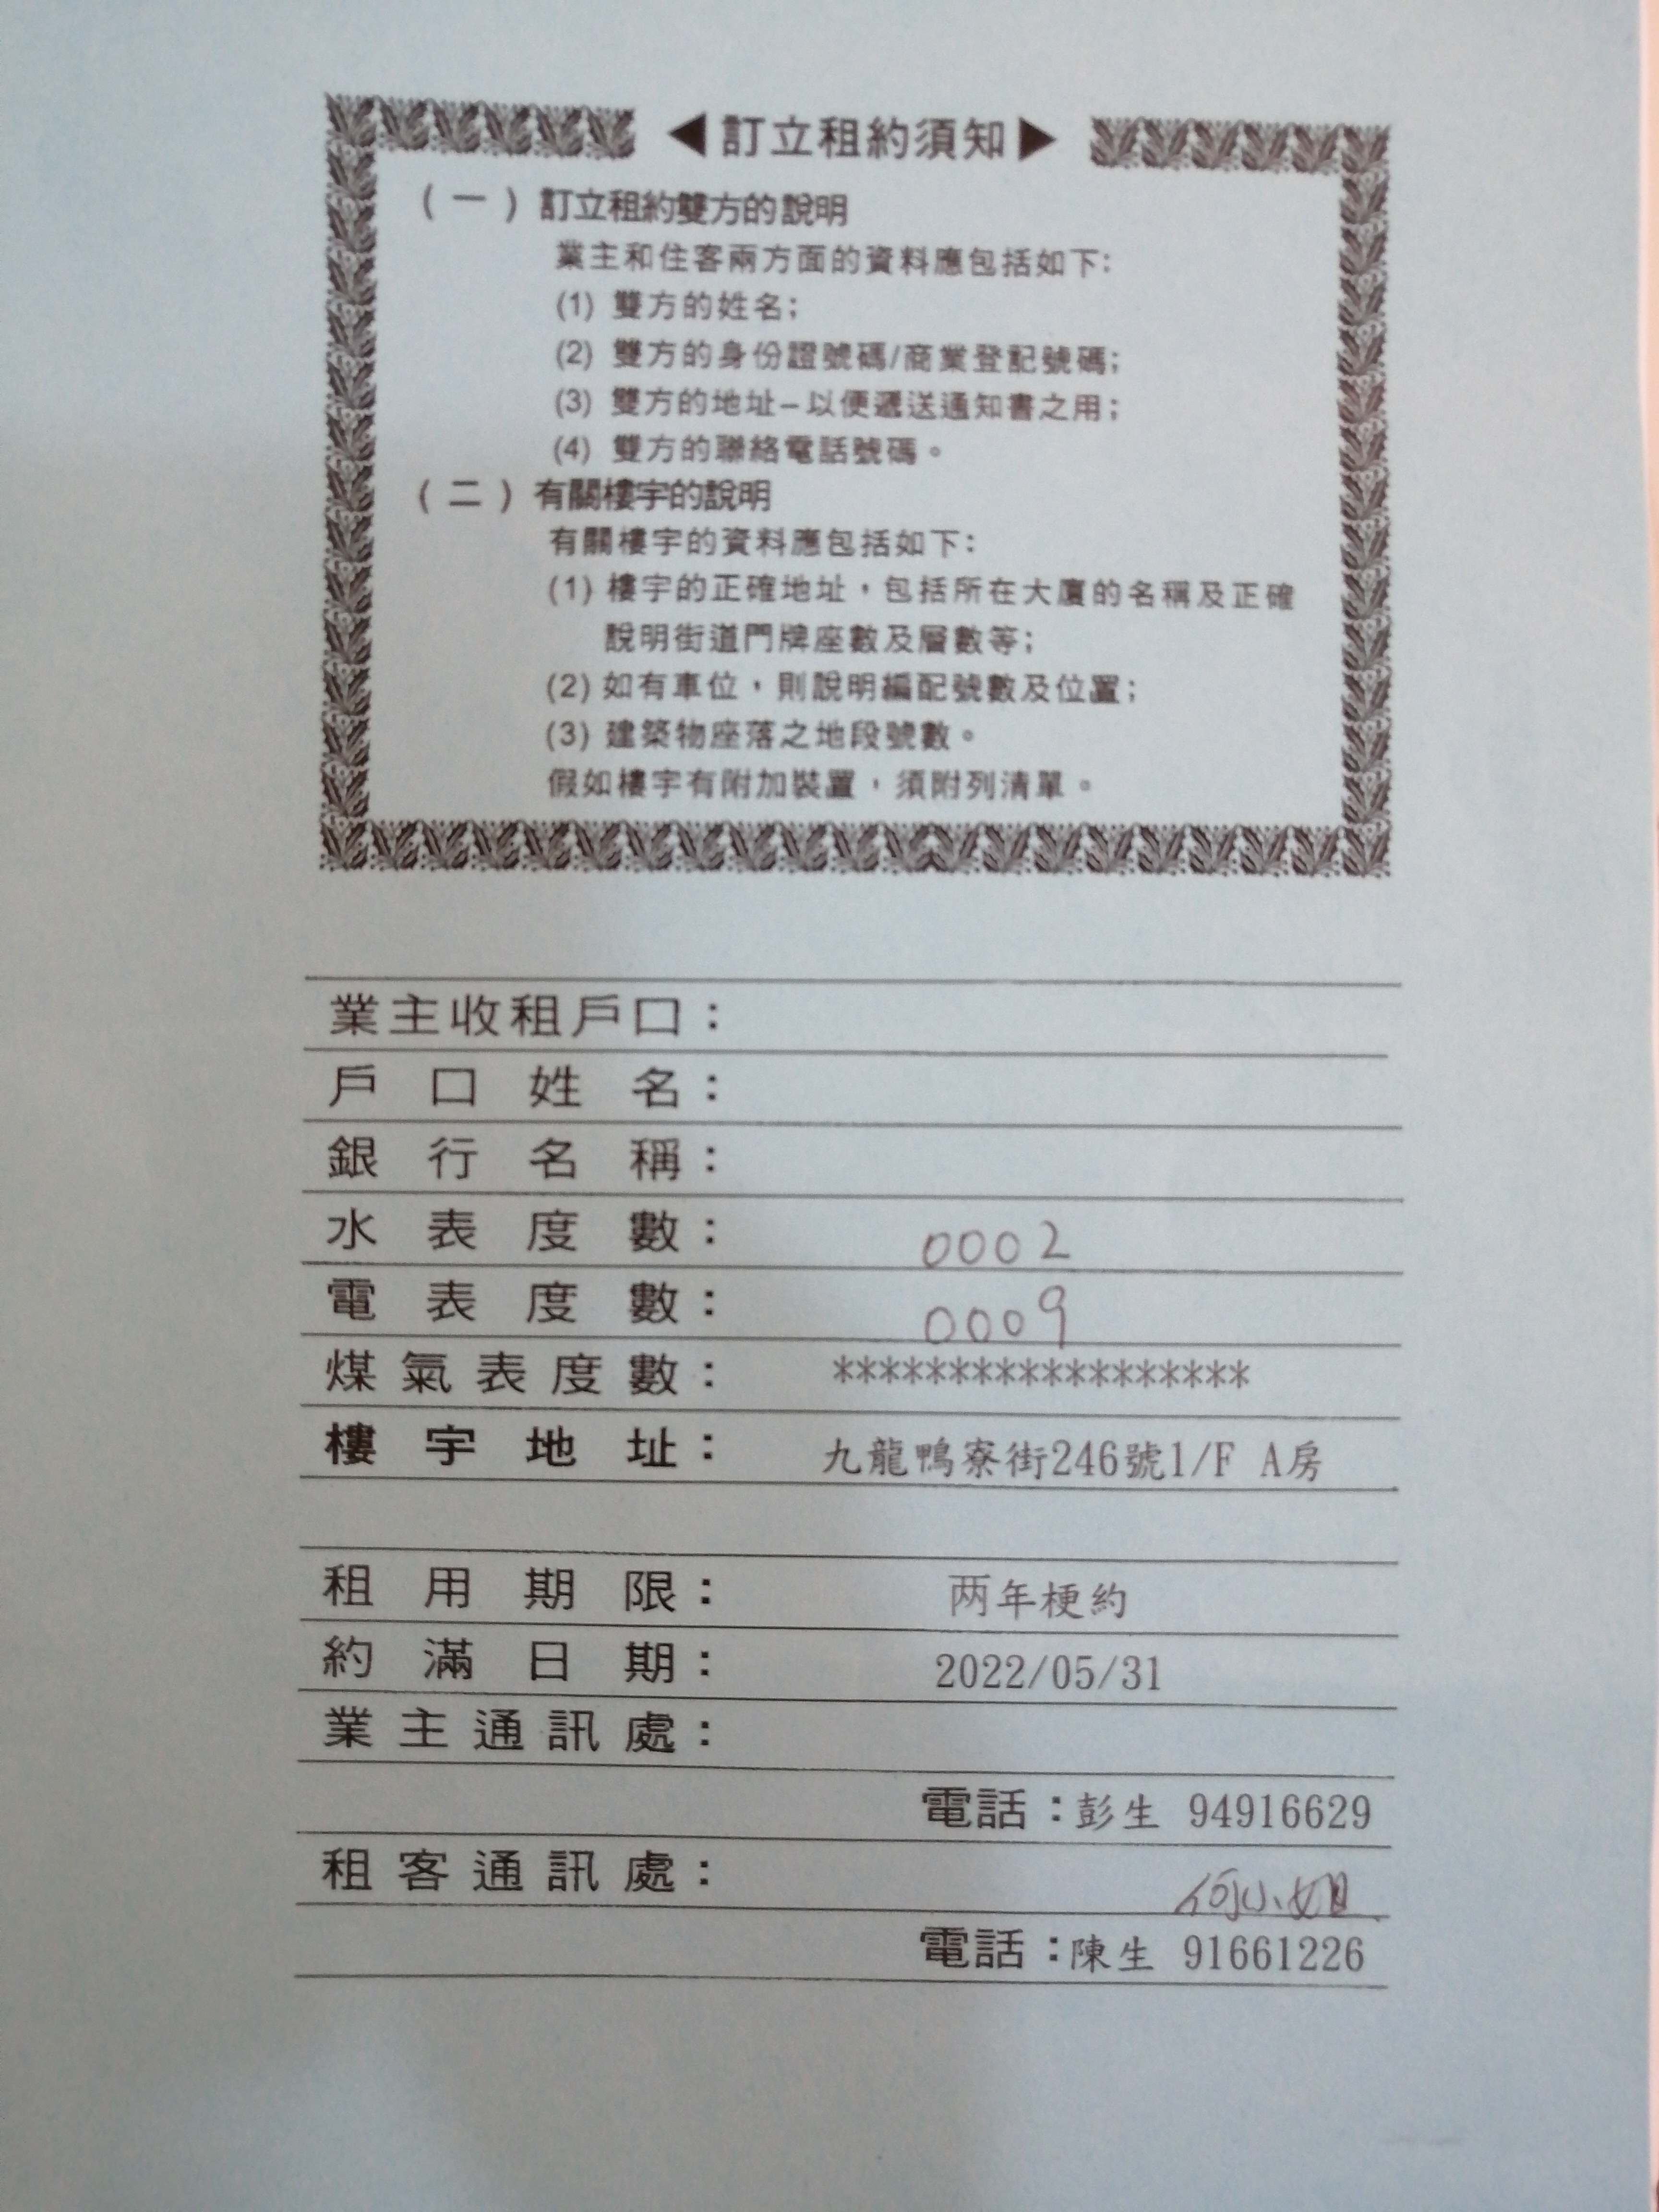 ◀訂立租約須知▶
(一)訂立租約雙方的說明
業主和住客兩方面的資料應包括如下:
(1) 雙方的姓名;
(2) 雙方的身份證號碼/商業登記號碼;
(3) 雙方的地址–以便遞送通知書之用;
(4) 雙方的聯絡電話號碼。
(二)有關樓宇的說明
有關樓宇的資料應包括如下:
(1) 樓宇的正確地址,包括所在大廈的名稱及正確
說明街道門牌座數及層數等;
(2) 如有車位,則說明編配號數及位置;
(3) 建築物座落之地段號數。
假如樓宇有附加裝置,須附列清單。
業主收租戶口:
戶口姓名:
銀行名稱:
水表度數: 0002
電表度數: 0009
煤氣表度數: ******************
樓宇地址: 九龍鴨寮街246號1/F A房
租用期限: 两年梗約
約滿日期: 2022/05/31
業主通訊處:
電話:彭生 94916629
租客通訊處: 何小姐
電話:陳生 91661226